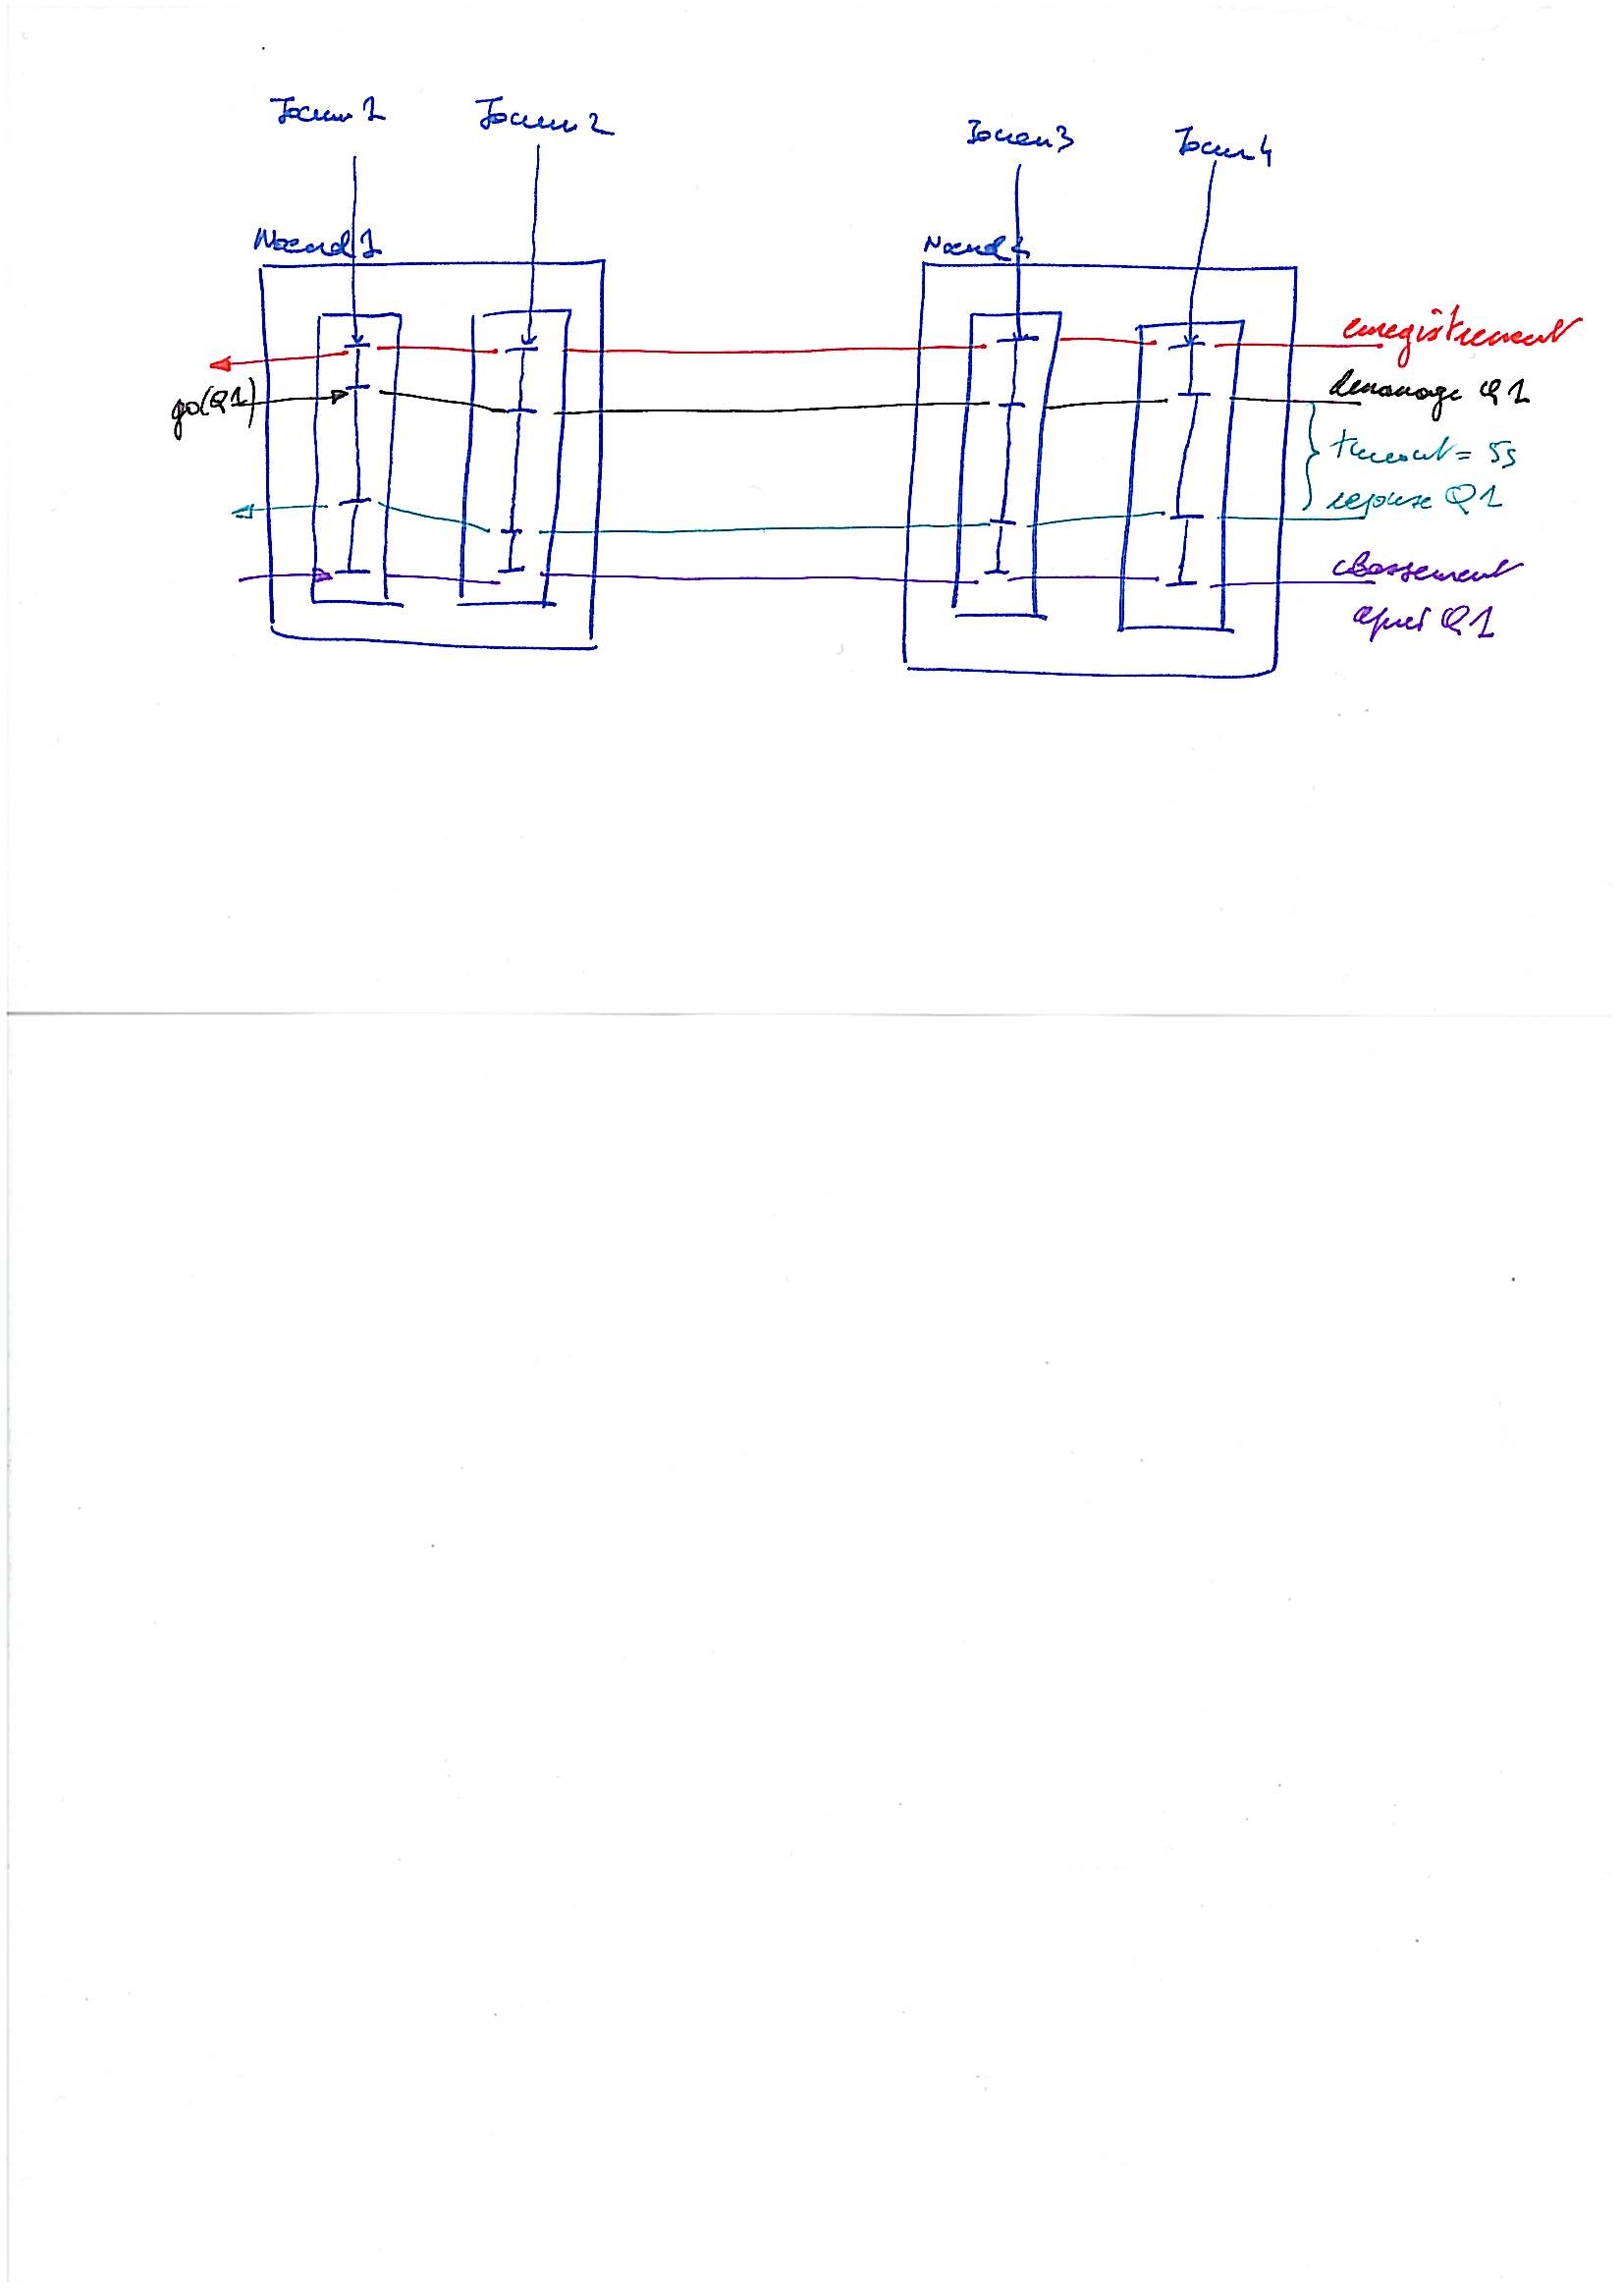 Joueur 1
Joueur 2
Joueur 3
Joueur 4
Noeud 1
Noeud
enregistrement
go(Q1)
demarrage Q1
timeout = 5s
reponse Q1
classement
apres Q1